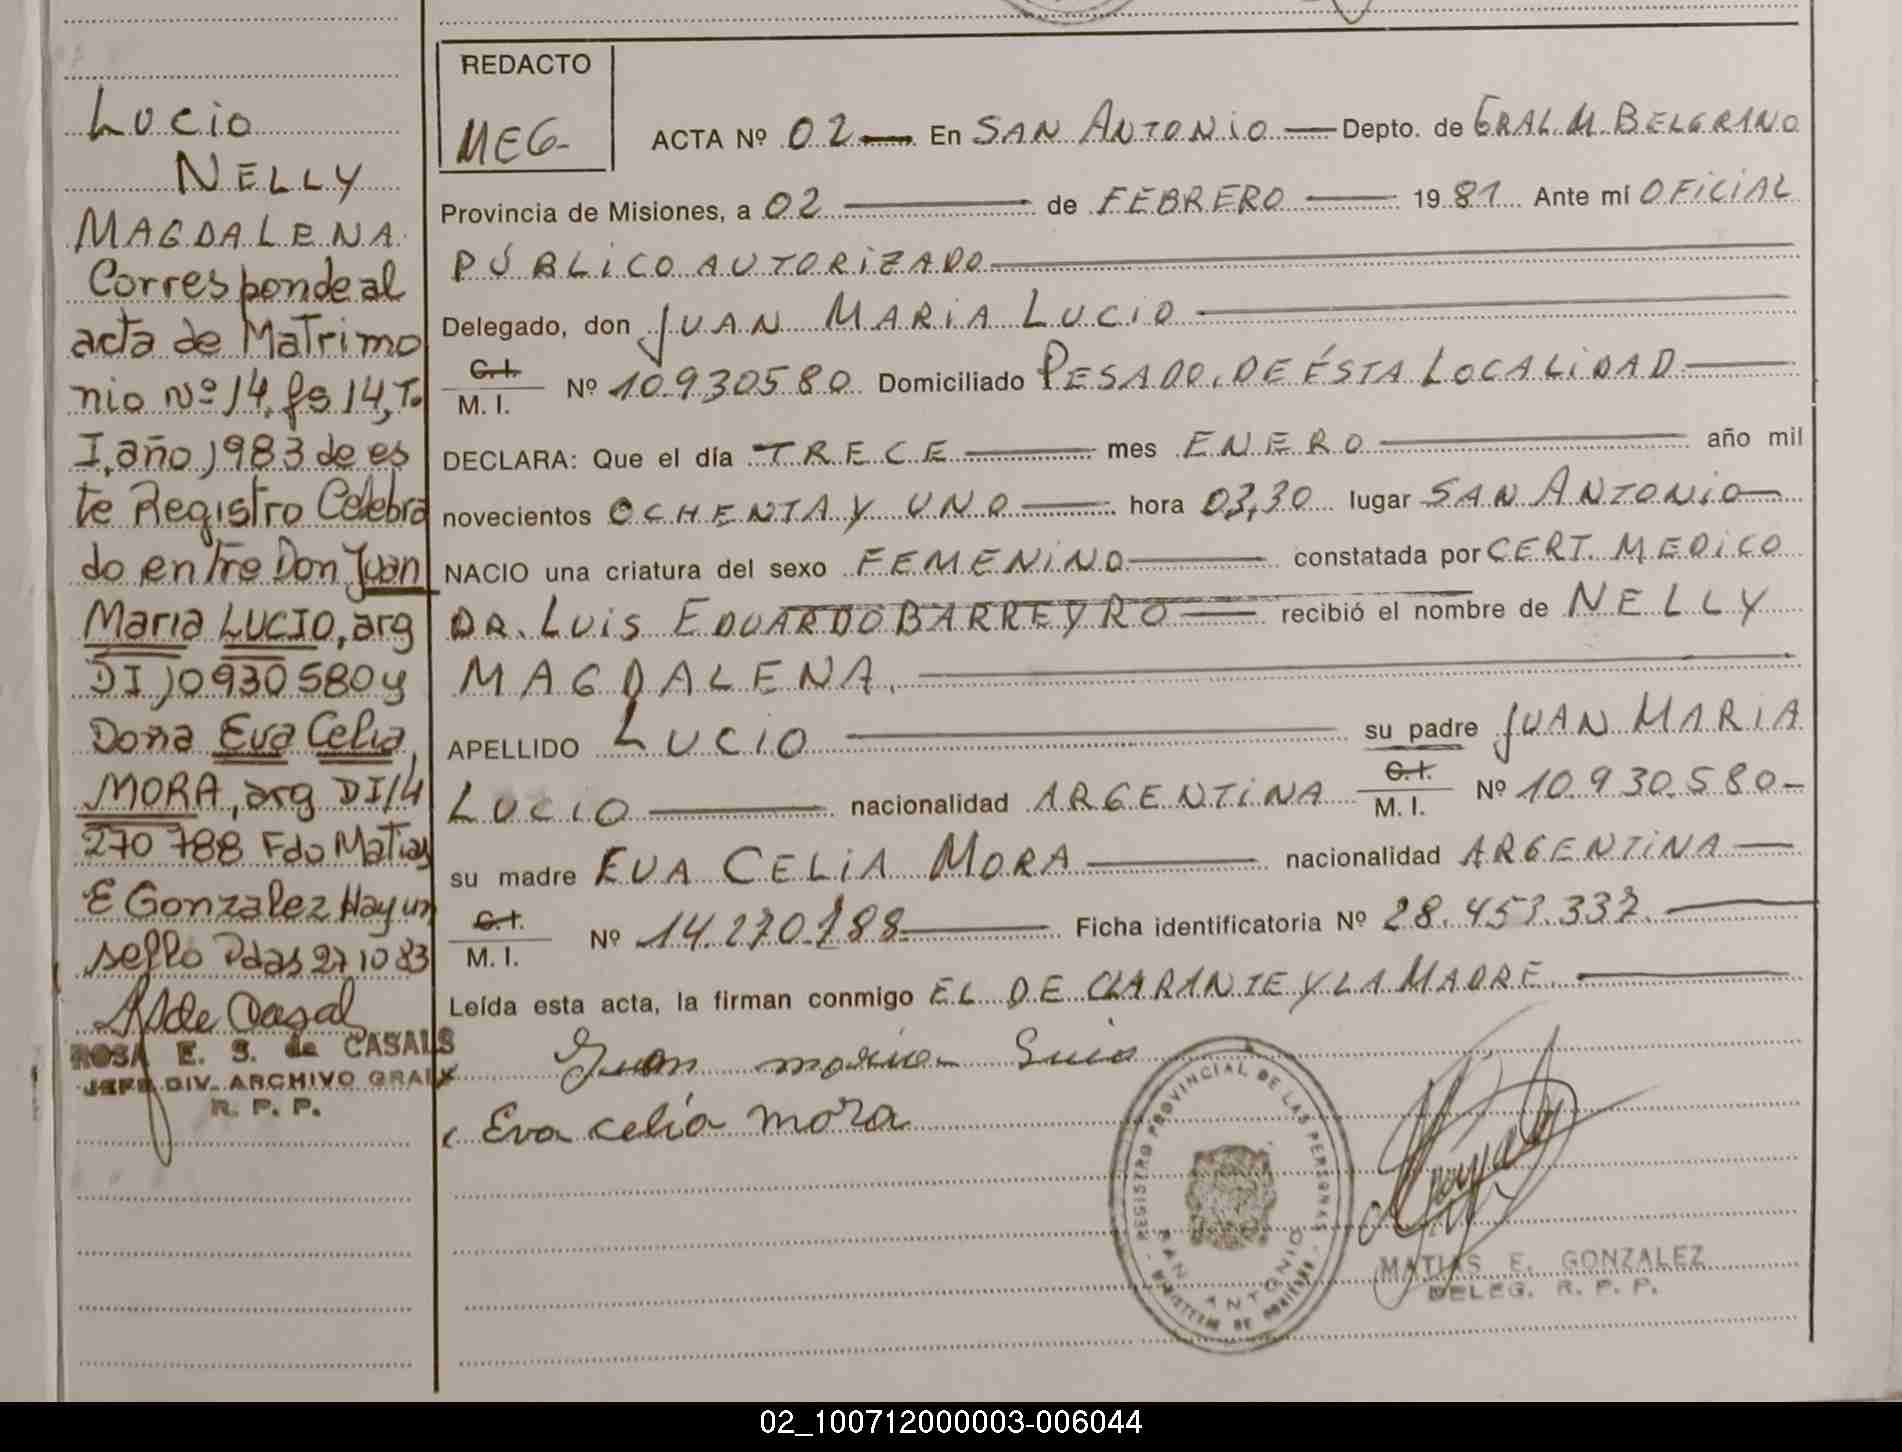 Lucio
NELLY
MAGDALENA
Corresponde al
acta de Matrimo
nio Nº 14, fs 14, T.
I, año 1983 de es
te Registro Celebra
do entre Don Juan
Maria LUCIO, arg
DI 10930580 y
Doña Eva Celia
MORA, arg DI 14
270 788 Fdo Matias
E Gonzalez Hay un
sello Pdas 27 10 83
ROSA E. S. de CASALS
JEFE DIV. ARCHIVO GRAL
R. P. P.
REDACTO
MEG-
ACTA Nº 02 En SAN ANTONIO Depto. de GRAL M. BELGRANO
Provincia de Misiones, a 02 de FEBRERO 1981 Ante mí OFICIAL
PÚBLICO AUTORIZADO
Delegado, don JUAN MARIA LUCIO
C.I. / M. I. Nº 10.930580 Domiciliado PESADO, DE ÉSTA LOCALIDAD
DECLARA: Que el día TRECE mes ENERO año mil
novecientos OCHENTA Y UNO hora 03,30 lugar SAN ANTONIO
NACIO una criatura del sexo FEMENINO constatada por CERT. MEDICO
DR. LUIS EDUARDO BARREYRO recibió el nombre de NELLY
MAGDALENA.
APELLIDO LUCIO su padre JUAN MARIA
LUCIO nacionalidad ARGENTINA C.I. / M. I. Nº 10.930.580-
su madre EVA CELIA MORA nacionalidad ARGENTINA
C.I. / M. I. Nº 14.270.788 Ficha identificatoria Nº 28.453.337.
Leída esta acta, la firman conmigo EL DECLARANTE Y LA MADRE.
Juan maria Lucio
Eva celia mora
REGISTRO PROVINCIAL DE LAS PERSONAS
SAN ANTONIO
MINISTERIO DE GOBIERNO
MATIAS E. GONZALEZ
DELEG. R. P. P.
02_100712000003-006044